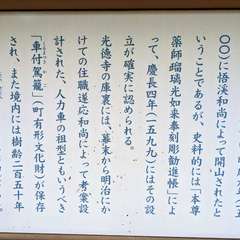 〇〇に悟渓和尚によって開山されたと
いうことであるが、史料的には「本尊
薬師瑠璃光如来奉刻彫勧進帳」によ
って、慶長四年(一五九九)にはその設
立が確実に認められる。
光徳寺の庫裏には、幕末から明治にか
けての住職遂応和尚によって考案設
計された、人力車の祖型ともいうべき
「車付駕籠」(町有形文化財)が保存
され、また境内には樹齢二百五十年